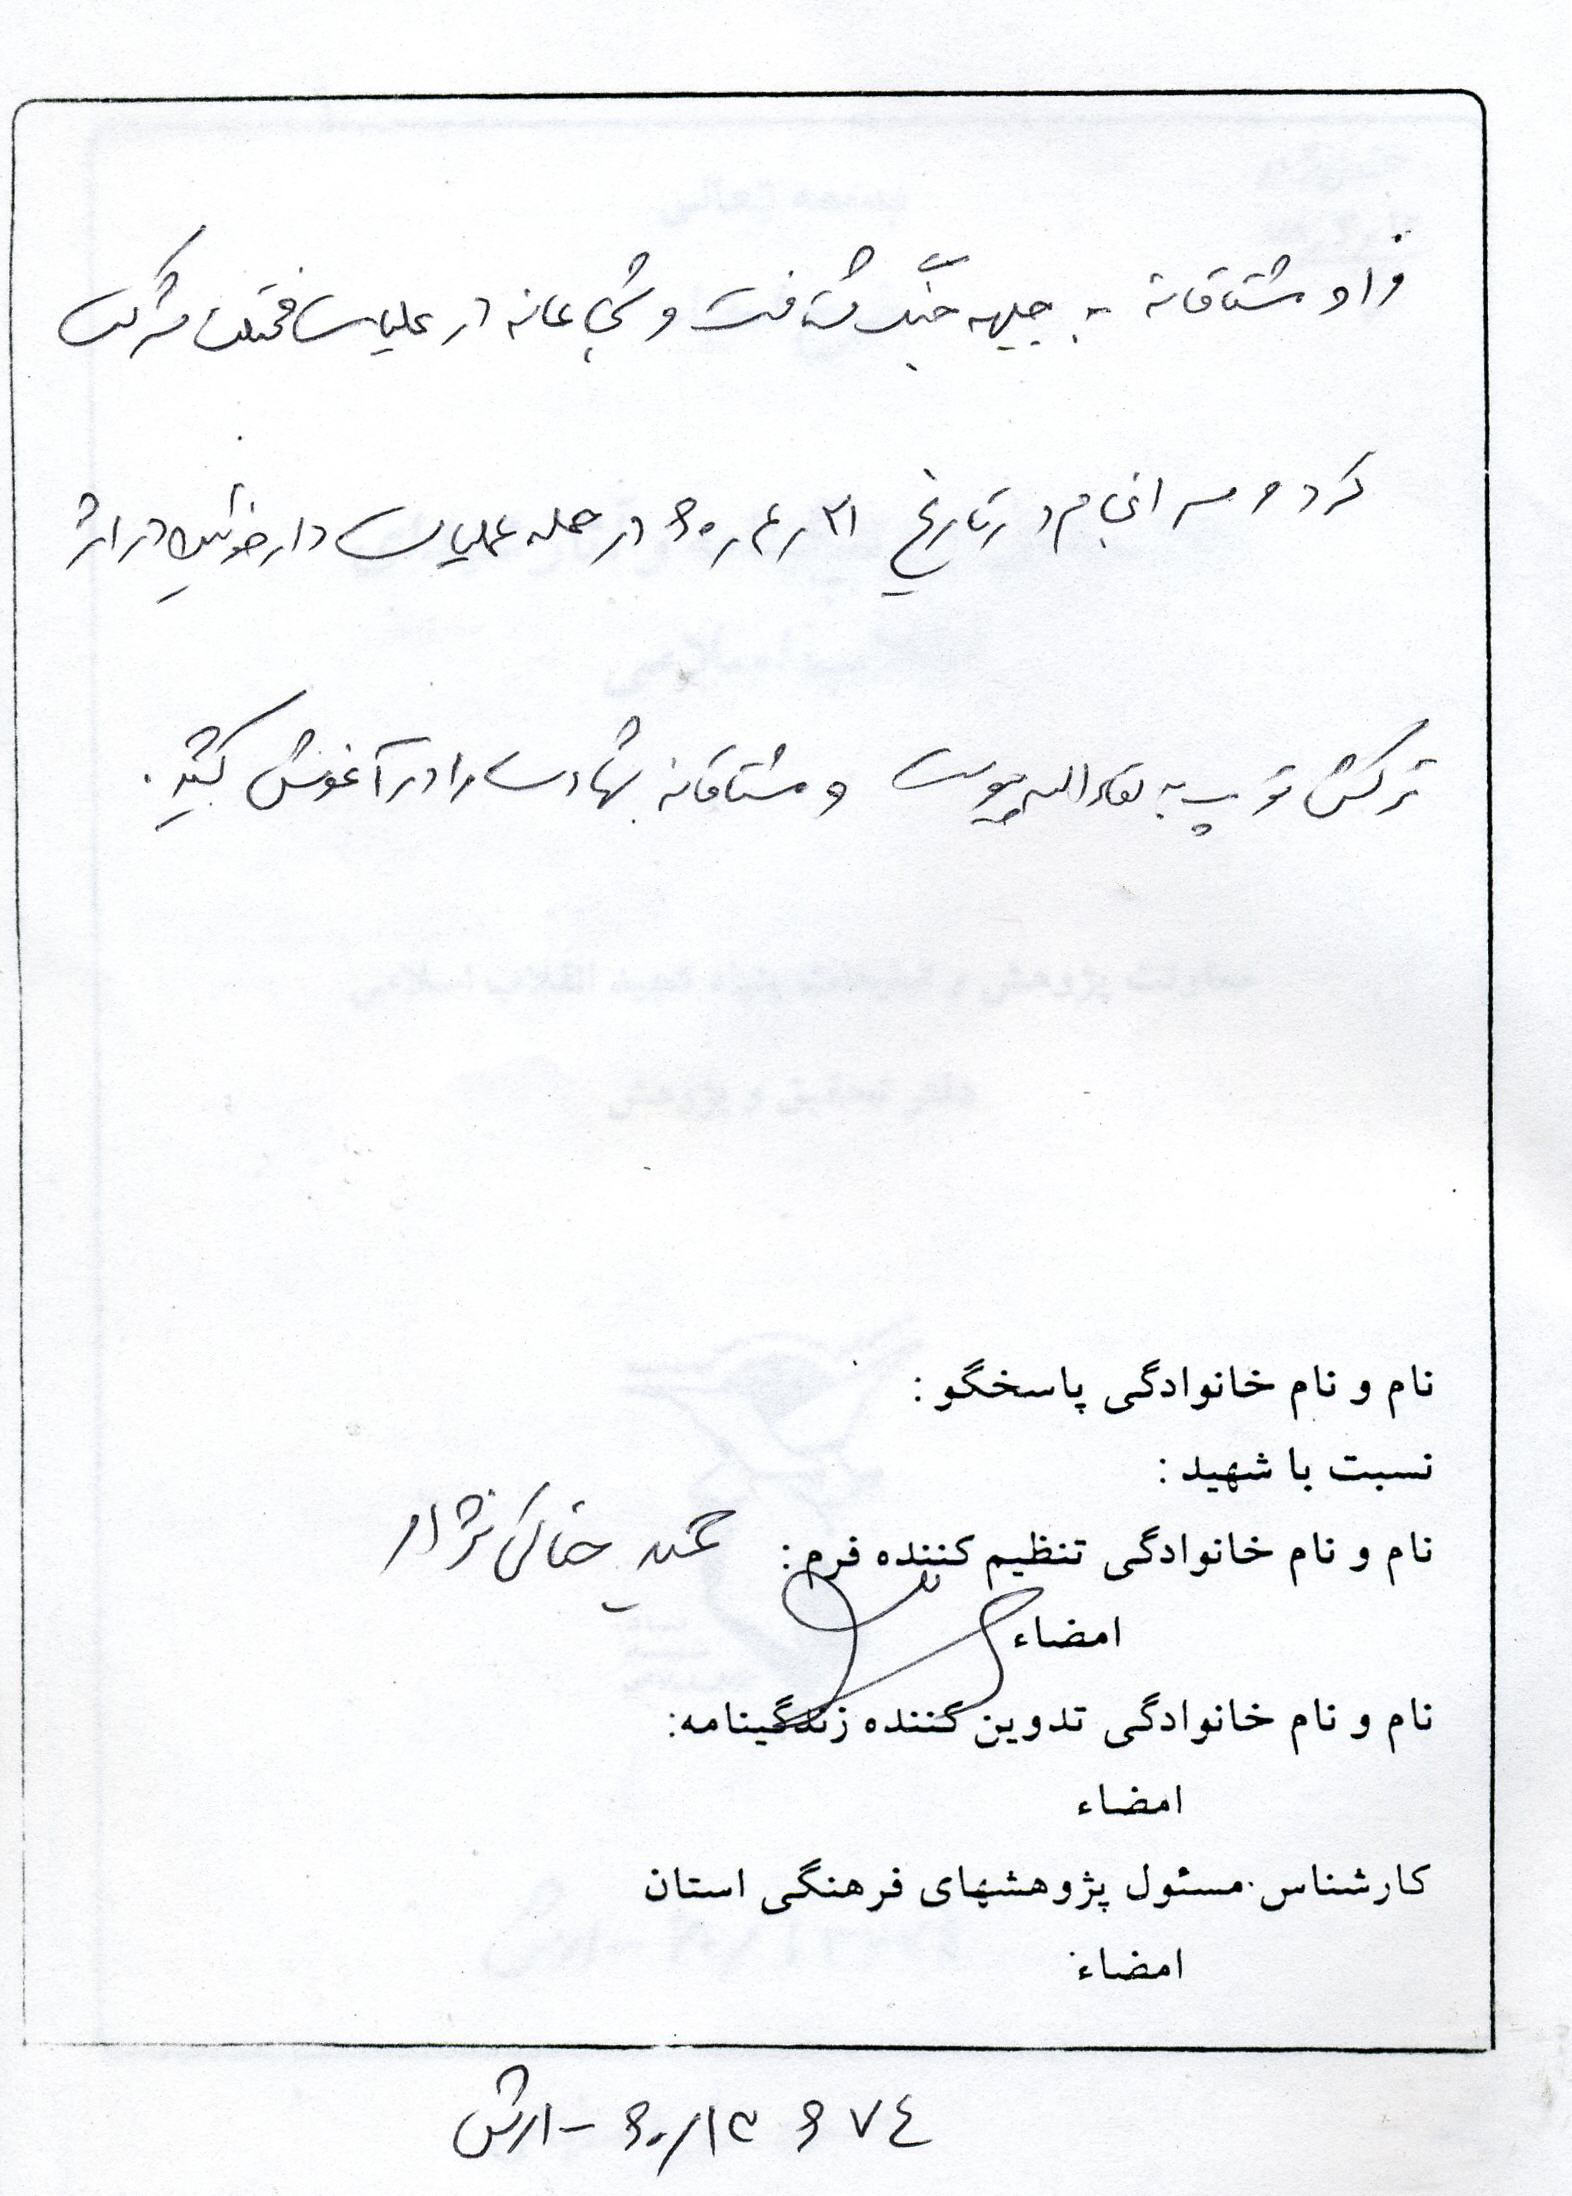 و او مشتاقانه به جبهه جنگ شتافت و شجاعانه در عملیات مختلف شرکت
کرد و سرانجام در تاریخ ۳۱ ر ۴ ر ۶۰ در حمله عملیات دارخوئین در اثر
ترکش توپ به لقاءالله پیوست و مشتاقانه شهادت را در آغوش کشید.
نام و نام خانوادگی پاسخگو :
نسبت با شهید :
نام و نام خانوادگی تنظیم کننده فرم: حمید خاکی نژاد
امضاء
نام و نام خانوادگی تدوین کننده زندگینامه:
امضاء
کارشناس مسئول پژوهشهای فرهنگی استان
امضاء
ارتش